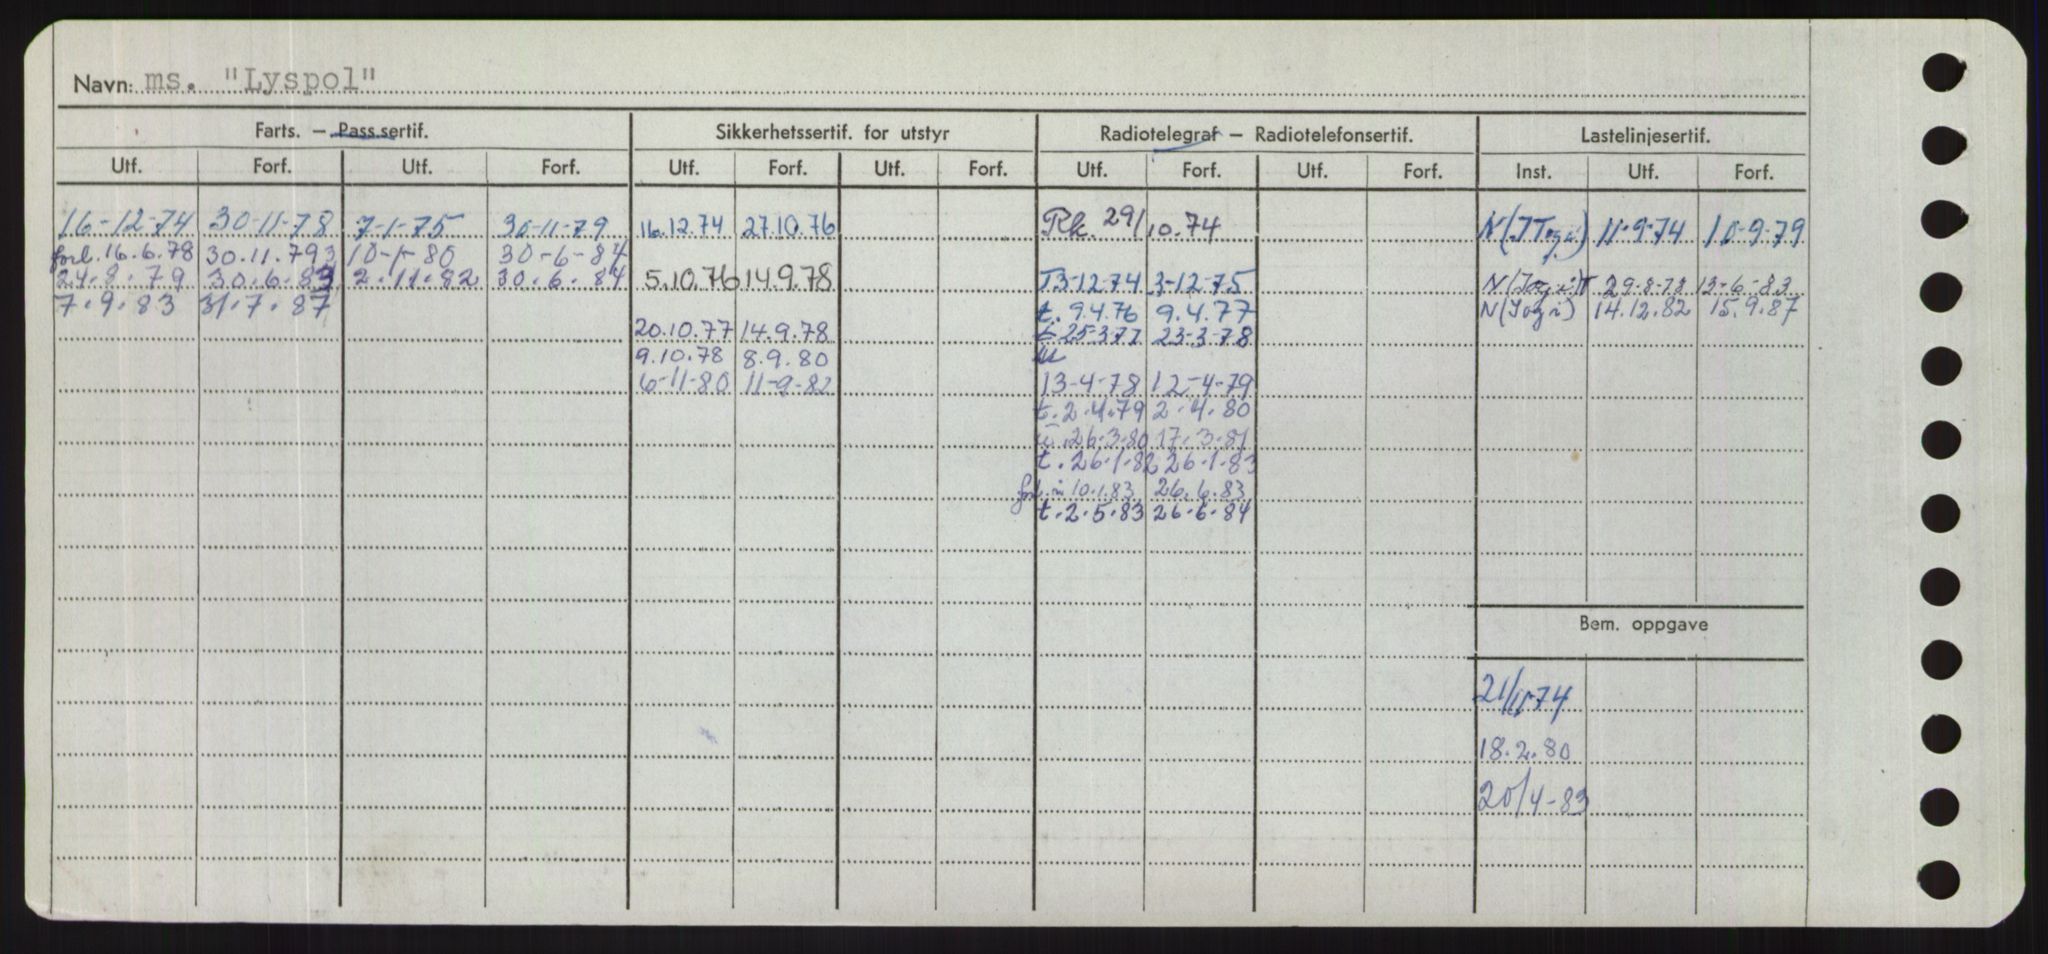 Navn: ms. "Lyspol"
Farts. — Pass.sertif. Sikkerhetssertif. for utstyr Radiotelegraf — Radiotelefonsertif. Lastelinjesertif.
Utf. Forf. Utf. Forf. Utf. Forf. Utf. Forf. Utf. Forf. Utf. Forf. Inst. Utf. Forf.
16-12-74 30-11-78 7-1-75 30-11-79 16.12.74 27.10.76 Rk. 29/10.74 11-9-74 10-9-79
forl. 16.6.78 30.11.79 10-1-80 30-6-84
24.8.79 30.6.83 2.11.82 30.6.84 5.10.76 14.9.78 T3-12-74 3-12-75 29-8-78 12-6-83
7.9.83 31.7.87 t. 9.4.76 9.4.77 14.12.82 15.9.87
20.10.77 14.9.78 t 25-3-77 23-3-78
9.10.78 8.9.80
6-11-80 11-9-82 13-4-78 12-4-79
t. 2.4.79 2.4.80
26.3.80 17.3.81
t. 26.1.82 26.1.83
10.1.83 26.6.83
t. 2.5.83 26.6.84
Bem. oppgave
21/11-74
18.2.80
20/4-83